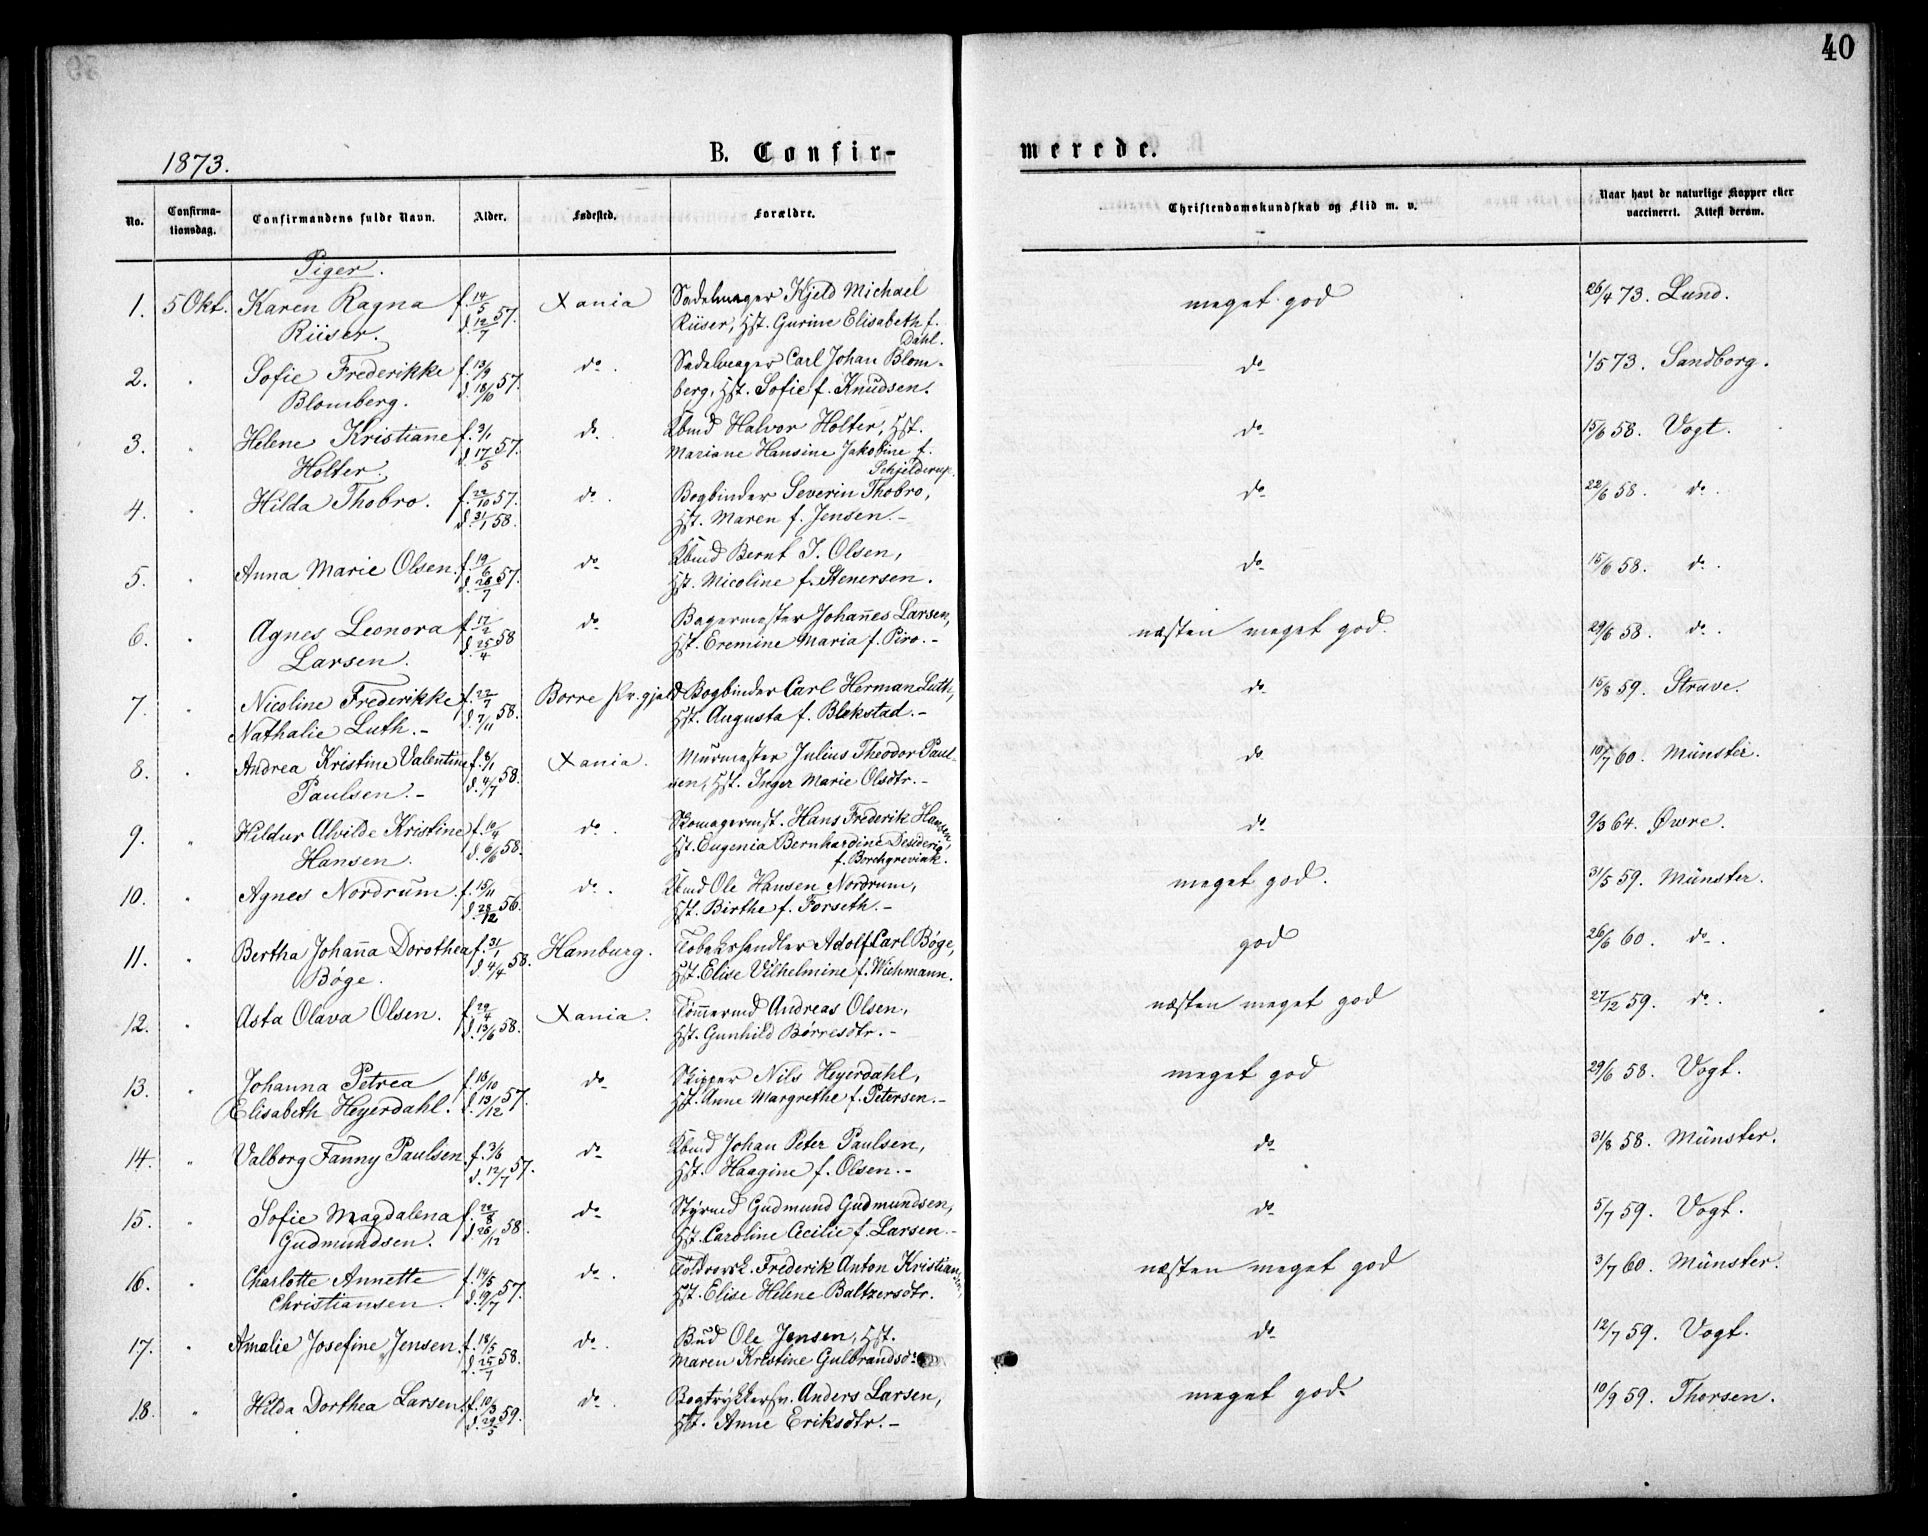 40
1873.
B. Confir-
merede.
No.
Confirma-
tionsdag.
Confirmandens fulde Navn.
Alder.
Fødested.
Forældre.
Christendomskundskab og Flid m. v.
Naar havt de naturlige Kopper eller
vaccineret. Attest derom.
Piger.
1. 5 Okt. Karen Ragna f. 14/5 57. Xania Sadelmager Kjeld Michael meget god 26/4 73. Lund.
Riiser. d. 12/7 Riiser, Hst. Gurine Elisabeth f.
Dahl.
2. " Sofie Frederikke f. 13/9 57. do. Sadelmager Carl Johan Blom- do 1/5 73. Sandborg.
Blomberg. d. 18/10 berg, Hst. Sofie f. Knudsen.
3. " Helene Kristiane f. 3/1 57. do. Kbmd Halvor Holter, Hst. do 15/6 58. Vogt.
Holter. d. 17/5 Mariane Hansine Jakobine f.
Schjelderup.
4. " Hilda Thobro. f. 22/10 57. do. Bogbinder Severin Thobro, do 22/6 58. do.
d. 31/1 58. Hst. Maren f. Jensen.-
5. " Anna Marie Olsen. f. 19/6 57. do Kbmd Bernt I. Olsen, do 15/6 58. do.
d. 20/7 Hst. Nicoline f. Stenersen.
6. " Agnes Leonora f. 17/2 58 do Bagermester Johannes Larsen, næsten meget god. 29/6 58. do.
Larsen. d. 25/4 Hst. Eremine Maria f. Piro.-
7. " Nicoline Frederikke f. 22/7 58. Borre Pr.gjeld Bogbinder Carl Herman Luth, do 15/8 59. Struve.
Nathalie Luth.- d. 7/11 Hst. Augusta f. Blekstad.-
8. " Andrea Kristine Valentine f. 8/1 58. Xania. Murmester Julius Theodor Paul- do 10/7 60. Münster.
Paulsen.- d. 4/7 sen, Hst. Inger Marie Olsdtr.-
9. " Hildur Alvilde Kristine f. 10/4 58. do. Skomagermst. Hans Frederik Hansen, do 9/3 64. Øvre.
Hansen. d. 6/6 Hst. Eugenia Bernhardine Desideria
f. Borchgrevink.
10. " Agnes Nordrum. f. 15/11 56. do. Kbmd Ole Hansen Nordrum, meget god. 31/5 59. Münster.
d. 28/12 Hst. Birthe f. Forseth.-
11. " Bertha Johanna Dorothea f. 31/1 58. Hamburg. Tobakshandler Adolf Carl Bøge, god 26/6 60. do.
Bøge. d. 4/4 Hst. Elise Vilhelmine f. Wichmann.
12. " Asta Olava Olsen. f. 29/4 58. Xania. Tømmermd Andreas Olsen, næsten meget god 27/12 59. do.
d. 13/6 Hst. Gunhild Børresdtr.-
13. " Johanna Petrea f. 16/10 57. do Skipper Nils Heyerdahl, meget god 29/6 58. Vogt.
Elisabeth Heyerdahl. d. 13/12 Hst. Anne Margrethe f. Petersen.-
14. " Valborg Fanny Paulsen f. 3/6 57. do Kbmd Johan Peter Paulsen, do 31/8 58. Münster.
d. 12/7 Hst. Haagine f. Olsen.-
15. " Sofie Magdalena f. 20/8 58. do Styrmd Gudmund Gudmundsen, do 5/7 59. Vogt.
Gudmundsen. d. 26/12 Hst. Caroline Cecilie f. Larsen.-
16. " Charlotte Annette f. 14/5 57. do. Frederik Anton Kristiansen, næsten meget god 3/7 60. Münster.
Christiansen. d. 19/7 Hst. Elise Helene Baltzersdtr.
17. " Amalie Josefine Jensen. f. 18/5 58. do. Bud Ole Jensen, Hst. do 12/7 59. Vogt.
d. 25/7 Maren Kristine Gulbrandsd
18. " Hilda Dorthea Larsen. f. 10/3 59. do. Bogtrykkersv. Anders Larsen, meget god. 10/9 59. Thorsen.
d. 29/5 Hst. Anne Eriksdtr.-